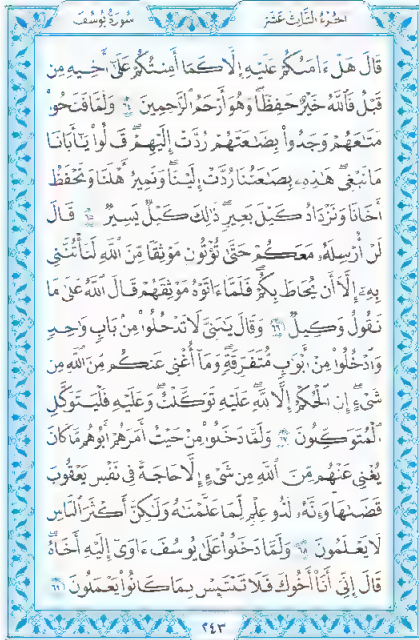 سُورَةُ يُوسُفَ الجُزْءُ الثَّالِثَ عَشَرَ
قَالَ هَلْ ءَامَنُكُمْ عَلَيْهِ إِلَّا كَمَآ أَمِنتُكُمْ عَلَىٰٓ أَخِيهِ مِن
قَبْلُ فَٱللَّهُ خَيْرٌ حَـٰفِظًا ۖ وَهُوَ أَرْحَمُ ٱلرَّٰحِمِينَ ٦٤ وَلَمَّا فَتَحُوا۟
مَتَـٰعَهُمْ وَجَدُوا۟ بِضَـٰعَتَهُمْ رُدَّتْ إِلَيْهِمْ ۖ قَالُوا۟ يَـٰٓأَبَانَا
مَا نَبْغِى ۖ هَـٰذِهِۦ بِضَـٰعَتُنَا رُدَّتْ إِلَيْنَا ۖ وَنَمِيرُ أَهْلَنَا وَنَحْفَظُ
أَخَانَا وَنَزْدَادُ كَيْلَ بَعِيرٍ ۖ ذَٰلِكَ كَيْلٌ يَسِيرٌ ٦٥ قَالَ
لَنْ أُرْسِلَهُۥ مَعَكُمْ حَتَّىٰ تُؤْتُونِ مَوْثِقًا مِّنَ ٱللَّهِ لَتَأْتُنَّنِى
بِهِۦٓ إِلَّآ أَن يُحَاطَ بِكُمْ ۖ فَلَمَّآ ءَاتَوْهُ مَوْثِقَهُمْ قَالَ ٱللَّهُ عَلَىٰ مَا
نَقُولُ وَكِيلٌ ٦٦ وَقَالَ يَـٰبَنِىَّ لَا تَدْخُلُوا۟ مِنۢ بَابٍ وَٰحِدٍ
وَٱدْخُلُوا۟ مِنْ أَبْوَٰبٍ مُّتَفَرِّقَةٍ ۖ وَمَآ أُغْنِى عَنكُم مِّنَ ٱللَّهِ مِن
شَىْءٍ ۖ إِنِ ٱلْحُكْمُ إِلَّا لِلَّهِ ۖ عَلَيْهِ تَوَكَّلْتُ ۖ وَعَلَيْهِ فَلْيَتَوَكَّلِ
ٱلْمُتَوَكِّلُونَ ٦٧ وَلَمَّا دَخَلُوا۟ مِنْ حَيْثُ أَمَرَهُمْ أَبُوهُم مَّا كَانَ
يُغْنِى عَنْهُم مِّنَ ٱللَّهِ مِن شَىْءٍ إِلَّا حَاجَةً فِى نَفْسِ يَعْقُوبَ
قَضَىٰهَا ۚ وَإِنَّهُۥ لَذُو عِلْمٍ لِّمَا عَلَّمْنَـٰهُ وَلَـٰكِنَّ أَكْثَرَ ٱلنَّاسِ
لَا يَعْلَمُونَ ٦٨ وَلَمَّا دَخَلُوا۟ عَلَىٰ يُوسُفَ ءَاوَىٰٓ إِلَيْهِ أَخَاهُ ۖ
قَالَ إِنِّىٓ أَنَا۠ أَخُوكَ فَلَا تَبْتَئِسْ بِمَا كَانُوا۟ يَعْمَلُونَ ٦٩
٢٤٣